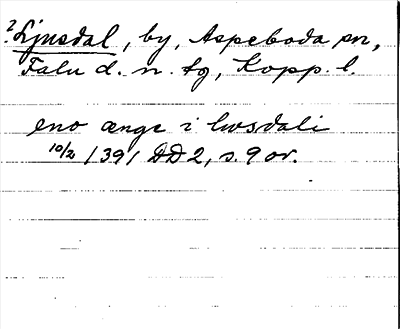 ?Ljusdal, by, Aspeboda sn,
Falu d. n. tg, Kopp. l.
eno ænge i lwsdali
10/2 1391 DD 2, s. 9 or.